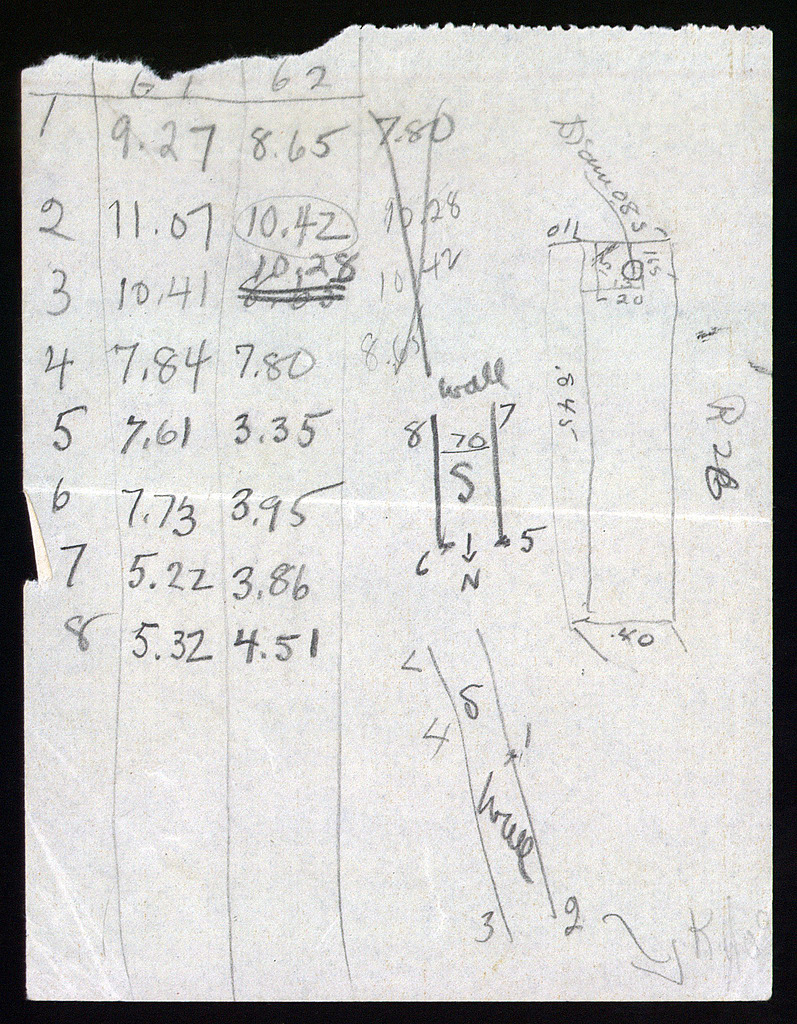 G1 G2
1 9.27 8.65 7.80
2 11.07 10.42 10.28
10.28
3 10.41 10.42
4 7.84 7.80
5 7.61 3.35
6 7.73 3.95
7 5.22 3.86
8 5.32 4.51
wall
8 70 7
S
6 5
N
S
4 1
wall
3 2
.110
.20
.845
.40
R2B